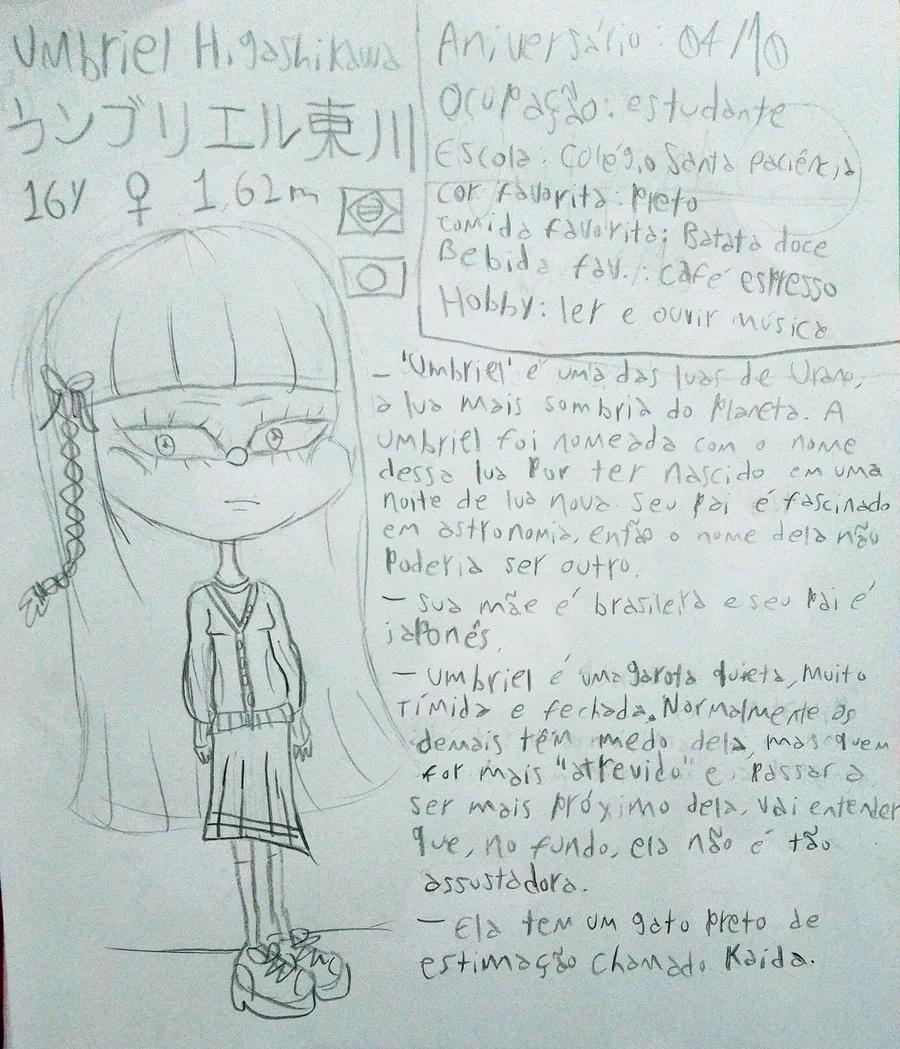 Umbriel Higashikawa
ウンブリエル東川
16y ♀ 1,62m
Aniversário: 04/10
Ocupação: estudante
Escola: Colégio Santa Paciência
cor favorita: Preto
comida favorita: Batata doce
Bebida fav.: café espresso
Hobby: ler e ouvir música
- 'Umbriel' é uma das luas de Urano,
a lua mais sombria do planeta. A
Umbriel foi nomeada com o nome
dessa lua Por ter nascido em uma
noite de lua nova. Seu pai é fascinado
em astronomia, então o nome dela não
Poderia ser outro.
- Sua mãe é brasileira e seu Pai é
japonês.
- Umbriel é uma garota quieta, muito
tímida e fechada. Normalmente os
demais têm medo dela, mas quem
for mais "atrevido" e passar a
ser mais próximo dela, vai entender
que, no fundo, ela não é tão
assustadora.
- Ela tem um gato preto de
estimação chamado Kaida.